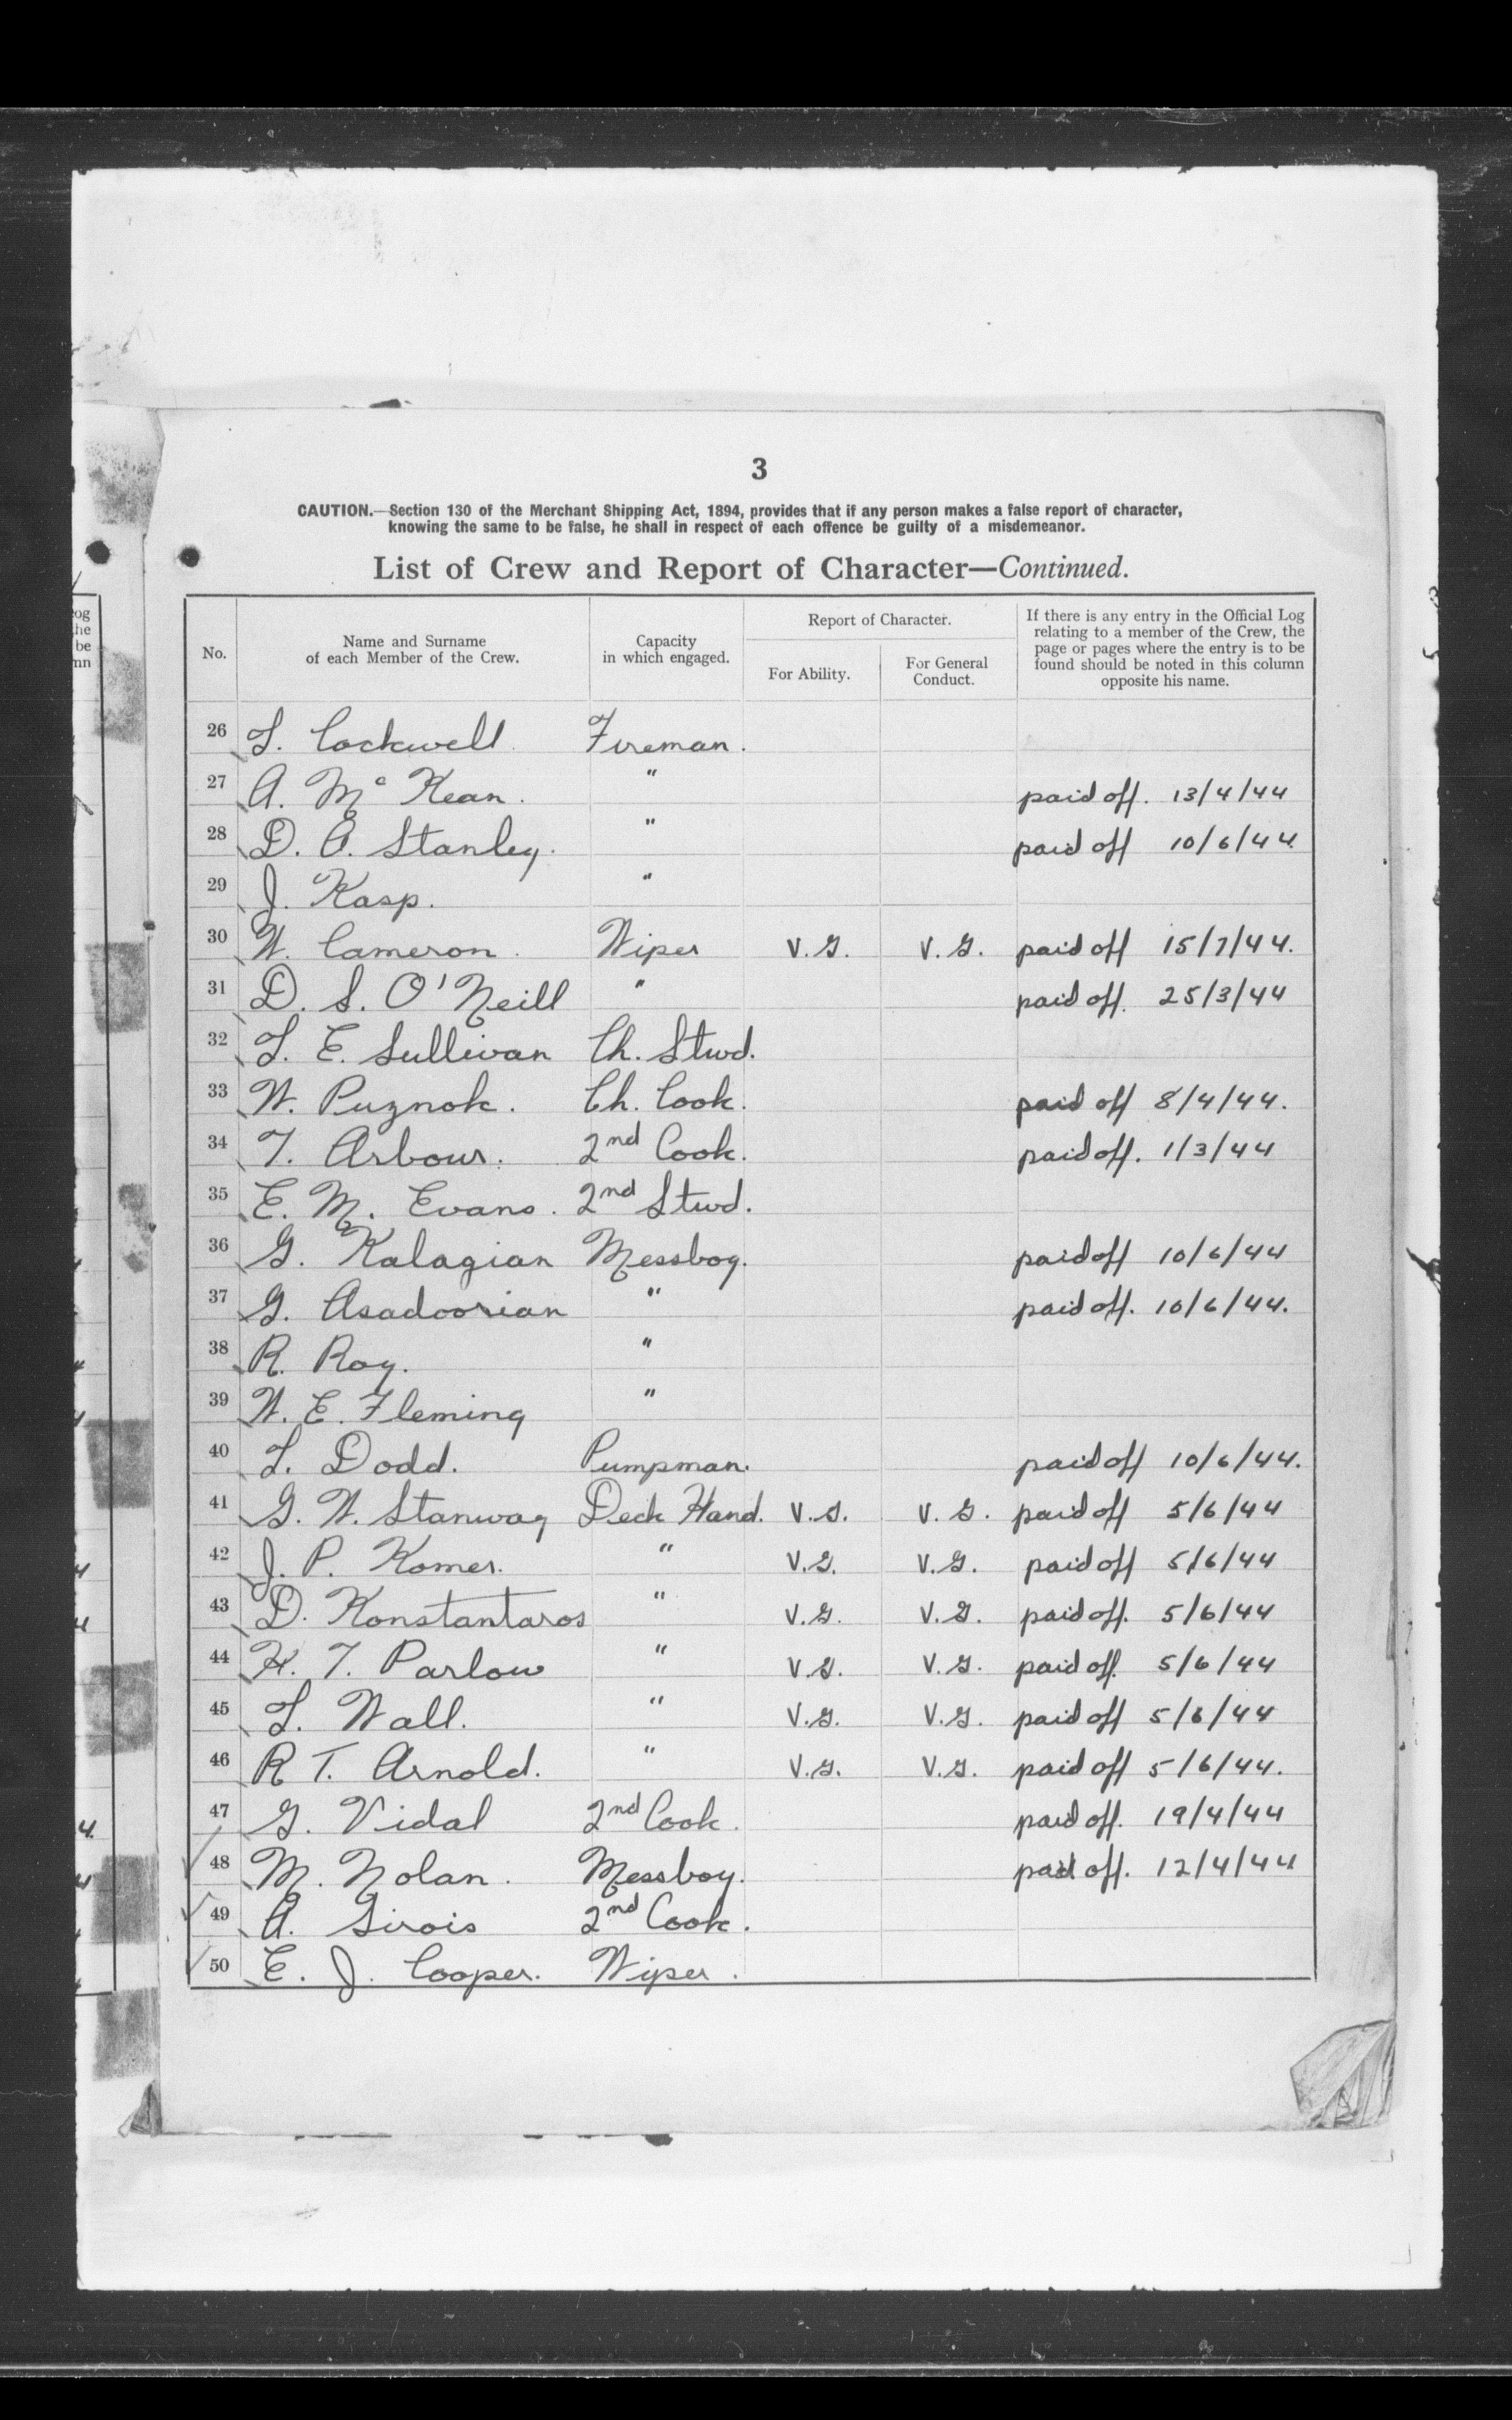 3
CAUTION.—Section 130 of the Merchant Shipping Act, 1894, provides that if any person makes a false report of character,
knowing the same to be false, he shall in respect of each offence be guilty of a misdemeanor.
List of Crew and Report of Character—Continued.
No. Name and Surname of each Member of the Crew. Capacity in which engaged. Report of Character. For Ability. For General Conduct. If there is any entry in the Official Log relating to a member of the Crew, the page or pages where the entry is to be found should be noted in this column opposite his name.
26 L. Cockwell. Fireman.
27 A. Mc Kean. " paid off. 13/4/44
28 D. A. Stanley. " paid off 10/6/44
29 J. Kasp. "
30 W. Cameron. Wiper V.G. V.G. paid off 15/7/44.
31 D. S. O'Neill " paid off. 25/3/44
32 L. E. Sullivan Ch. Stwd.
33 W. Puznok. Ch. Cook. paid off 8/4/44.
34 T. Arbour. 2nd Cook. paid off. 1/3/44
35 E. M. Evans. 2nd Stwd.
36 G. Kalagian Messboy. paid off 10/6/44
37 G. Asadoorian " paid off. 10/6/44.
38 R. Roy. "
39 W. E. Fleming "
40 L. Dodd. Pumpman. paid off 10/6/44.
41 G. W. Stanway Deck Hand. V.G. V.G. paid off 5/6/44
42 J. P. Komer. " V.G. V.G. paid off 5/6/44
43 D. Konstantaros " V.G. V.G. paid off. 5/6/44
44 H. T. Parlow " V.G. V.G. paid off. 5/6/44
45 L. Wall. " V.G. V.G. paid off 5/6/44
46 R T. Arnold. " V.G. V.G. paid off 5/6/44.
47 G. Vidal 2nd Cook. paid off. 19/4/44
48 M. Nolan. Messboy. paid off. 12/4/44
49 A. Sirois 2nd Cook.
50 E. J. Cooper. Wiper.